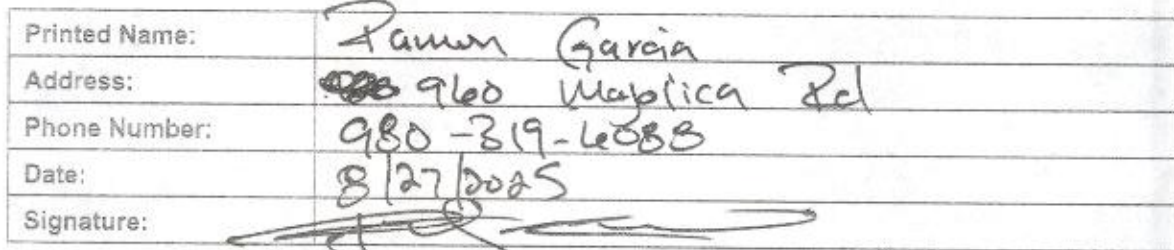 Printed Name: Ramon Garcia
Address: 960 Maplica Rd
Phone Number: 980-319-6088
Date: 8/27/2025
Signature: